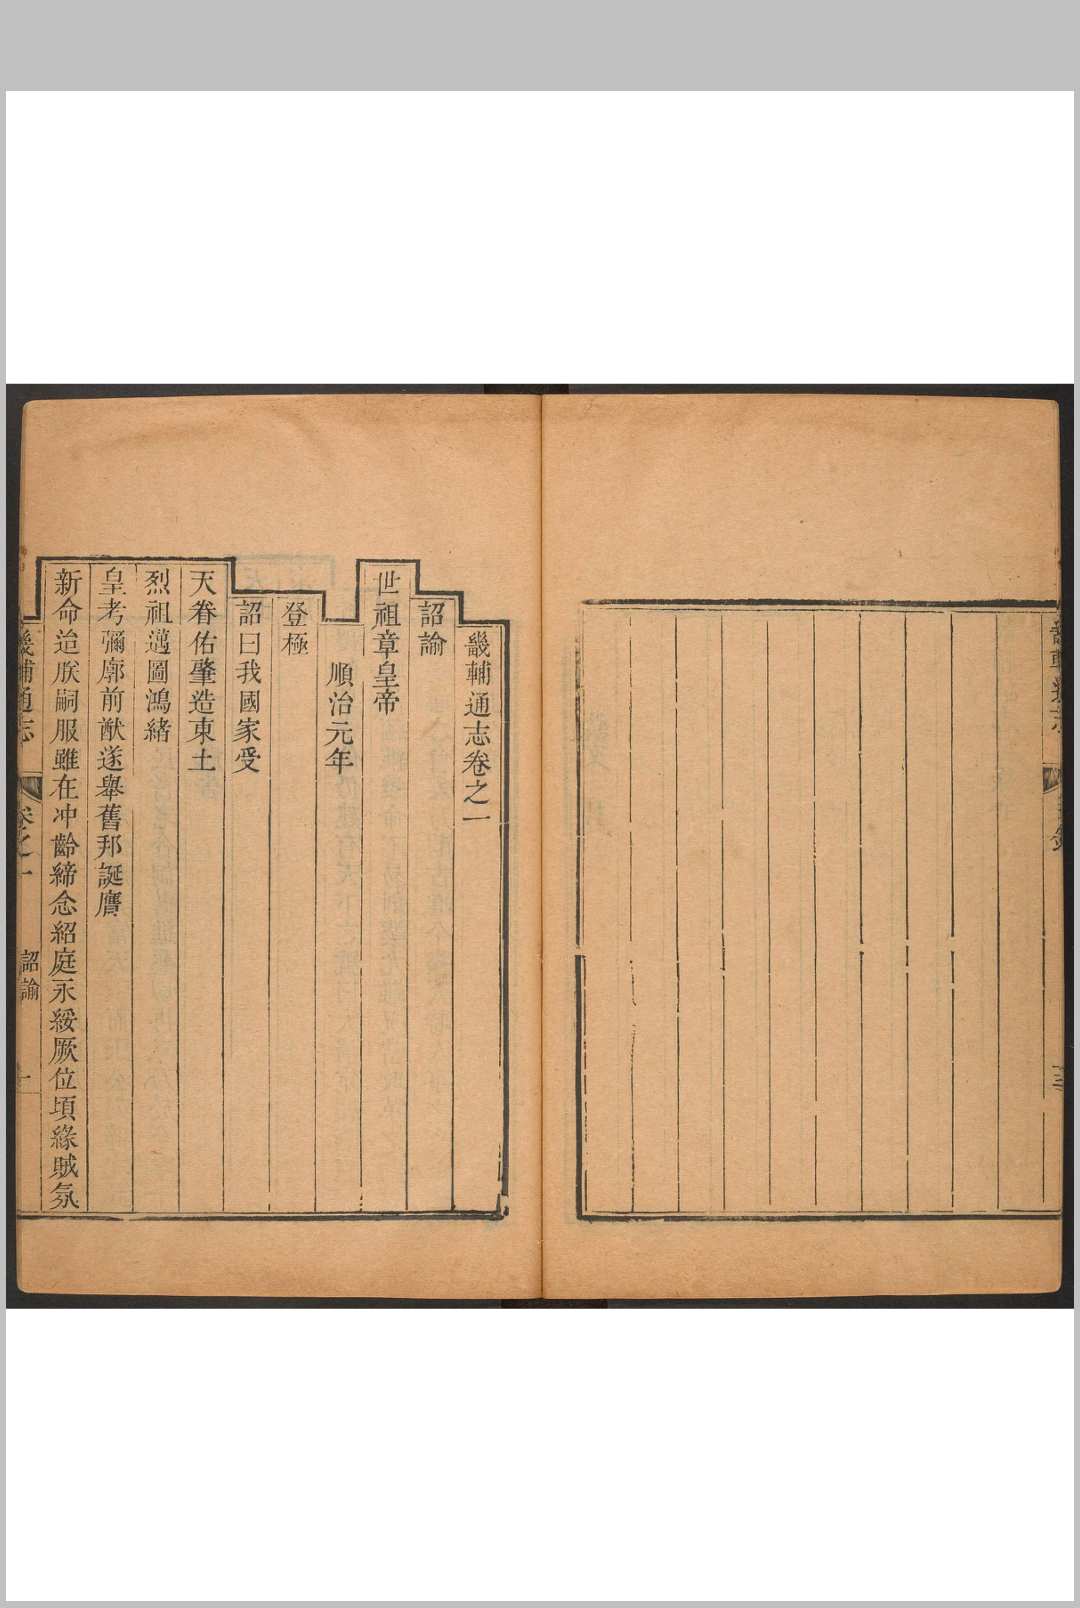 畿輔通志卷之一
詔諭
世祖章皇帝
順治元年
登極
詔曰我國家受
天眷佑肇造東土
烈祖邁圖鴻緒
皇考彌廓前猷遂舉舊邦誕膺
新命迨朕嗣服雖在冲齡締念紹庭永綏厥位頃緣賊氛
畿輔通志
卷之一
詔諭
一